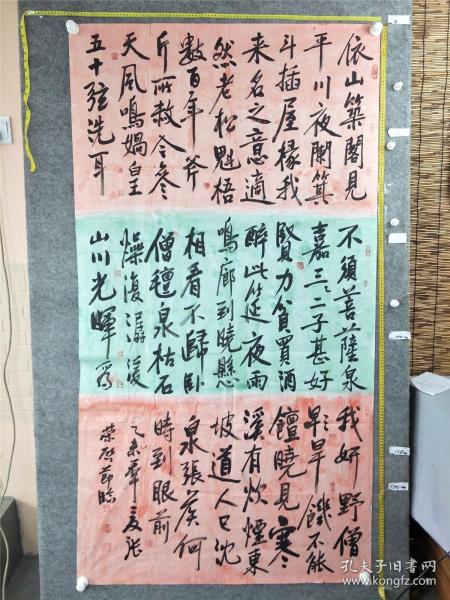 依山築閣見
平川夜闌箕
斗插屋椽我
来名之意適
然老松魁梧
數百年斧
斤所赦今參
天風鳴媧皇
五十弦洗耳
不須菩薩泉
嘉三二子甚好
賢力貧買酒
醉此筵夜雨
鳴廊到曉懸
相看不歸臥
僧氈泉枯石
燥復潺湲
山川光暉為
我妍野僧
旱饑不能
饘曉見寒
溪有炊煙東
坡道人已沈
泉張侯何
時到眼前
乙未年夏張
節臨
孔夫子旧书网
book.kongfz.com